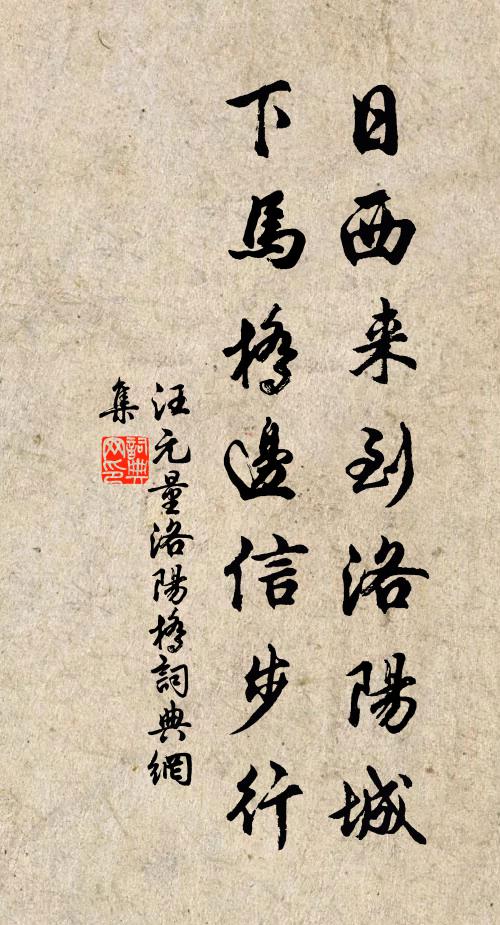 日西来到洛陽城
下馬橋邊信步行
汪元量洛陽橋詞典網
集
詞典
网印